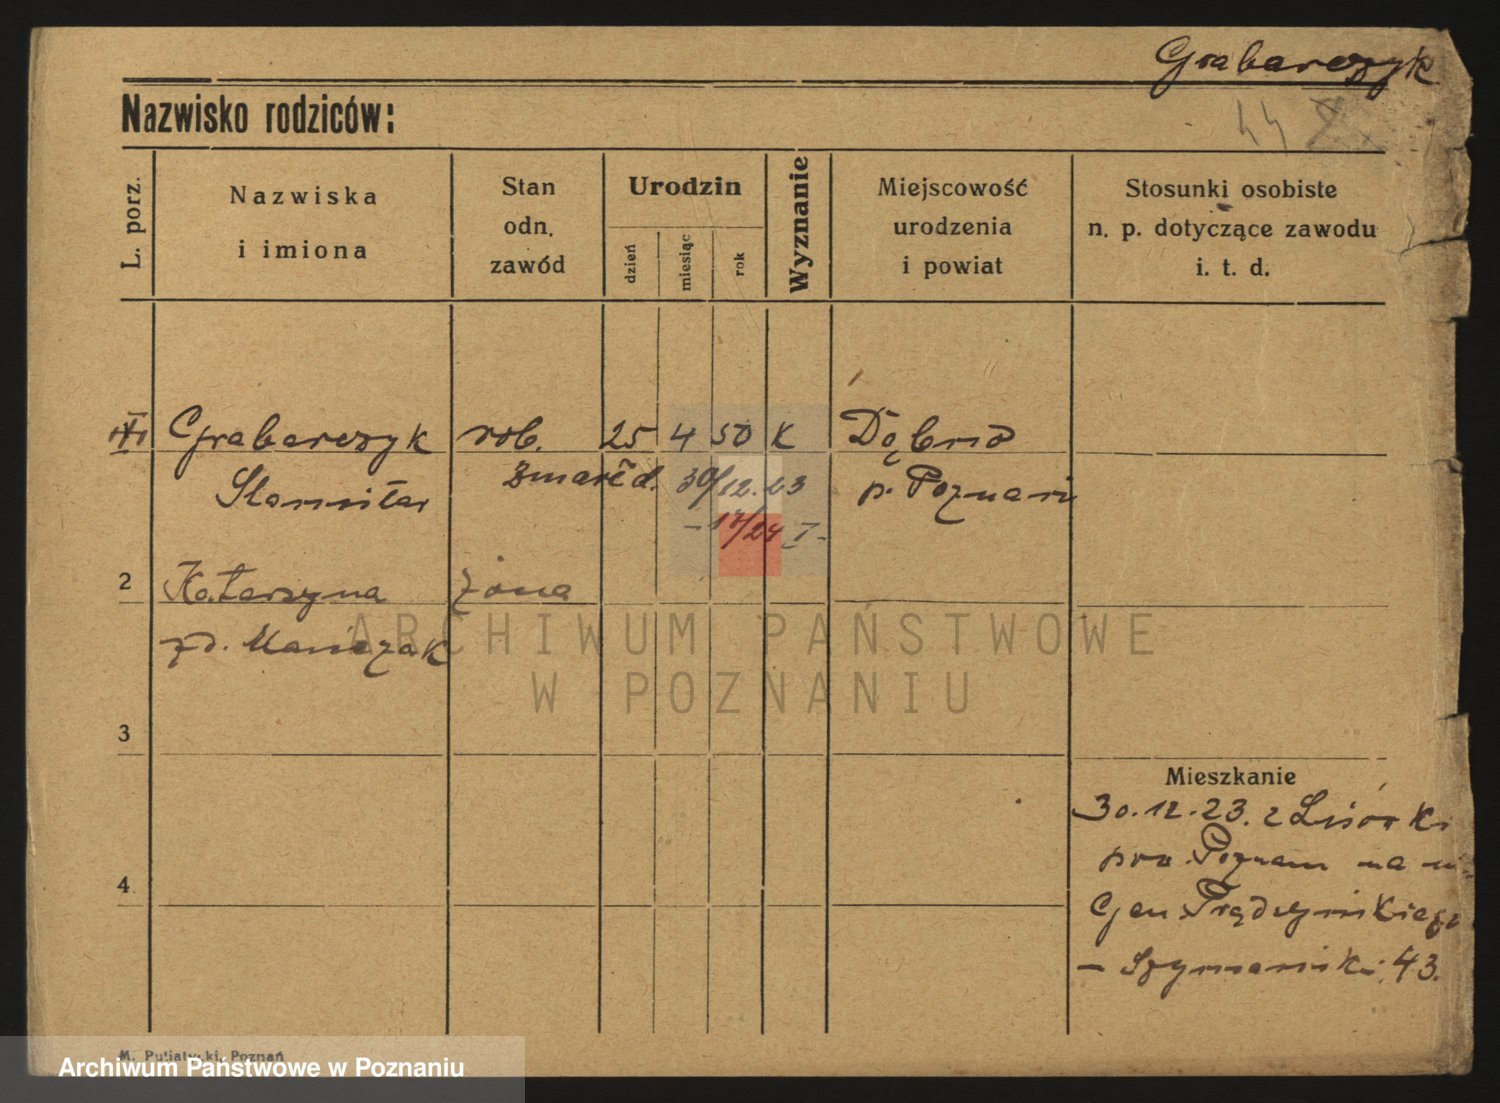 Grabarczyk
Nazwisko rodziców:
44
L. porz.
Nazwiska
i imiona
Stan
odn.
zawód
Urodzin
dzień
miesiąc
rok
Wyznanie
Miejscowość
urodzenia
i powiat
Stosunki osobiste
n. p. dotyczące zawodu
i. t. d.
Grabarczyk rob. 25 4 50 K Dąbrno
Stanisław zmarł d. 30/12.23 p. Poznań
- 17/24 I -
2 Katarzyna żona
zd. Mańczak
ARCHIWUM PAŃSTWOWE
W POZNANIU
3
Mieszkanie
30.12.23. z Lisówki
pow. Poznań na
4
Gen. Prądzyńskiego
- Szymański 43.
M. Putiatycki, Poznań
Archiwum Państwowe w Poznaniu